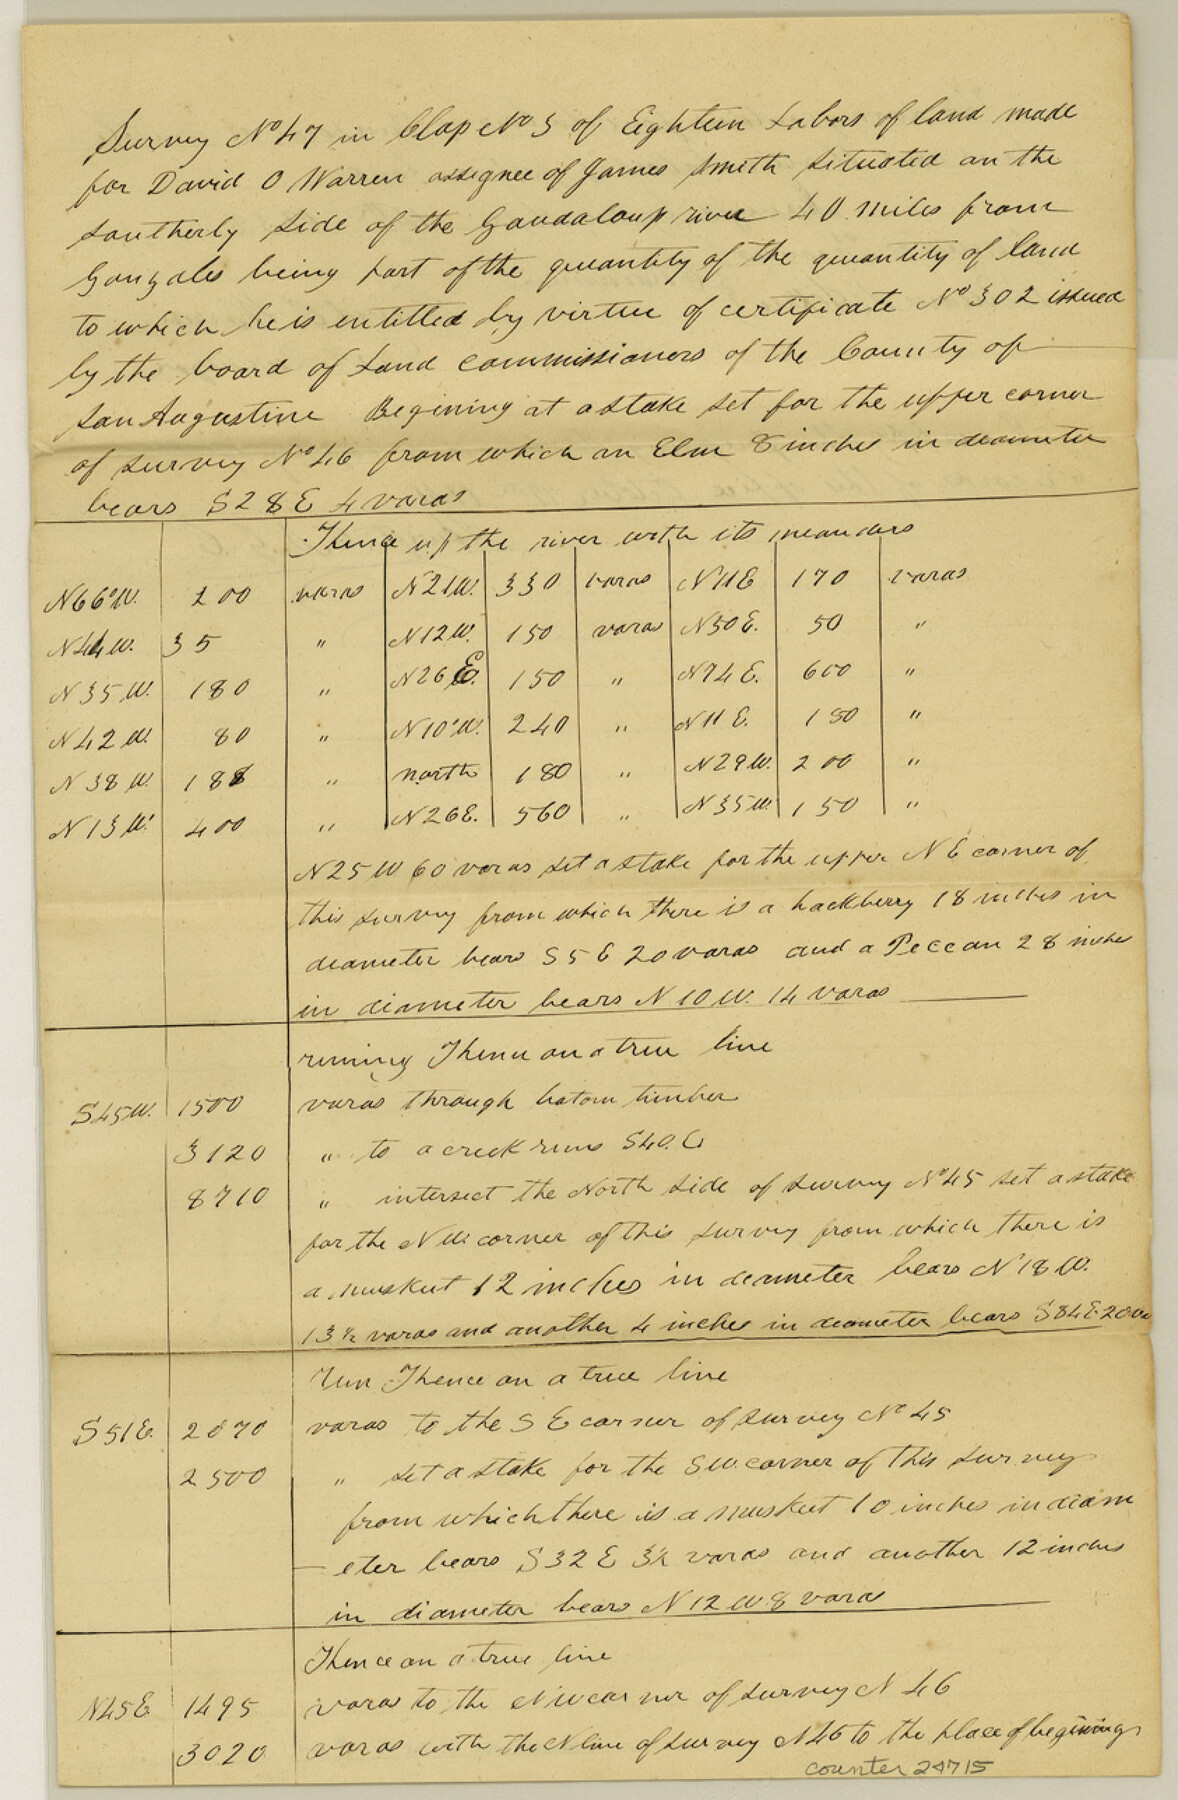 Survey No 47 in Clap No 3 of Eighteen Labors of land made
for David O Warren assignee of James Smith situated on the
southerly side of the Gaudaloup river 40 miles from
Gonzales being part of the quantity of the quantity of land
to which he is entitled by virtue of certificate No 302 issued
by the board of Land commissioners of the County of
San Augustine Begining at a stake set for the upper corner
of survey No 46 from which an Elm 8 inches in deameter
bears S28E 4 varas
Thence up the river with its meanders
N66°W. 200 varas N21W. 330 varas N11E 170 varas
N44W. 35 " N12W. 150 varas N50E. 50 "
N35W. 180 " N26E. 150 " N74E. 600 "
N42W. 80 " N10°W. 240 " N11E. 180 "
N38W. 188 " north 180 " N29W. 200 "
N13W. 400 " N26E. 560 " N35W. 150 "
N25W 60 varas set a stake for the upper N E corner of
this survey from which there is a hackberry 18 inches in
deameter bears S5E 20 varas and a Peccan 28 inches
in diameter bears N10W. 14 varas
runing Thence on a true line
S45W. 1500 varas through botom timber
3120 " to a creek runs S40.E
8710 " intersect the North side of survey No 45 set a stake
for the N W. corner of this survey from which there is
a muskeet 12 inches in deameter bears N18W.
13½ varas and another 4 inches in deameter bears S84E. 20
run Thence on a true line
S51E. 2070 varas to the S E corner of survey No 45
2500 " set a stake for the S W. corner of this survey
from which there is a muskeet 10 inches in diam
eter bears S32E 3½ varas and another 12 inches
in diameter bears N12W. 8 vara
Thence on a true line
N45E. 1495 varas to the N W corner of survey N 46
3020 varas with the N line of survey N46 to the place of begining
counter 24715